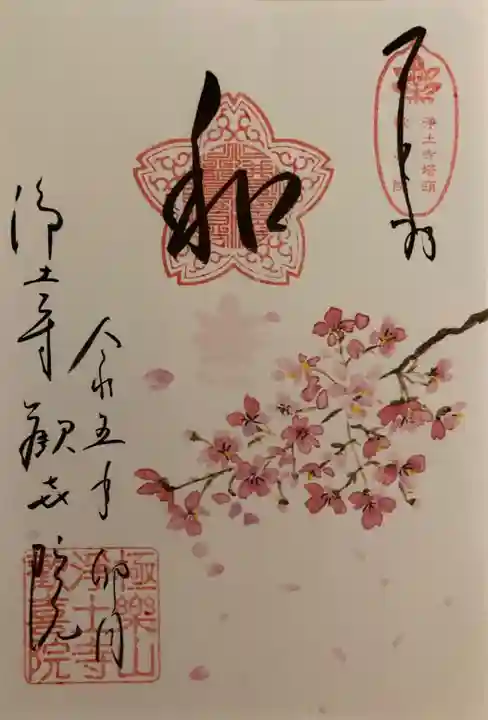 浄土寺塔頭
和
令和五年 卯月
浄土寺 歓喜院
極樂山
淨土寺
歡喜院